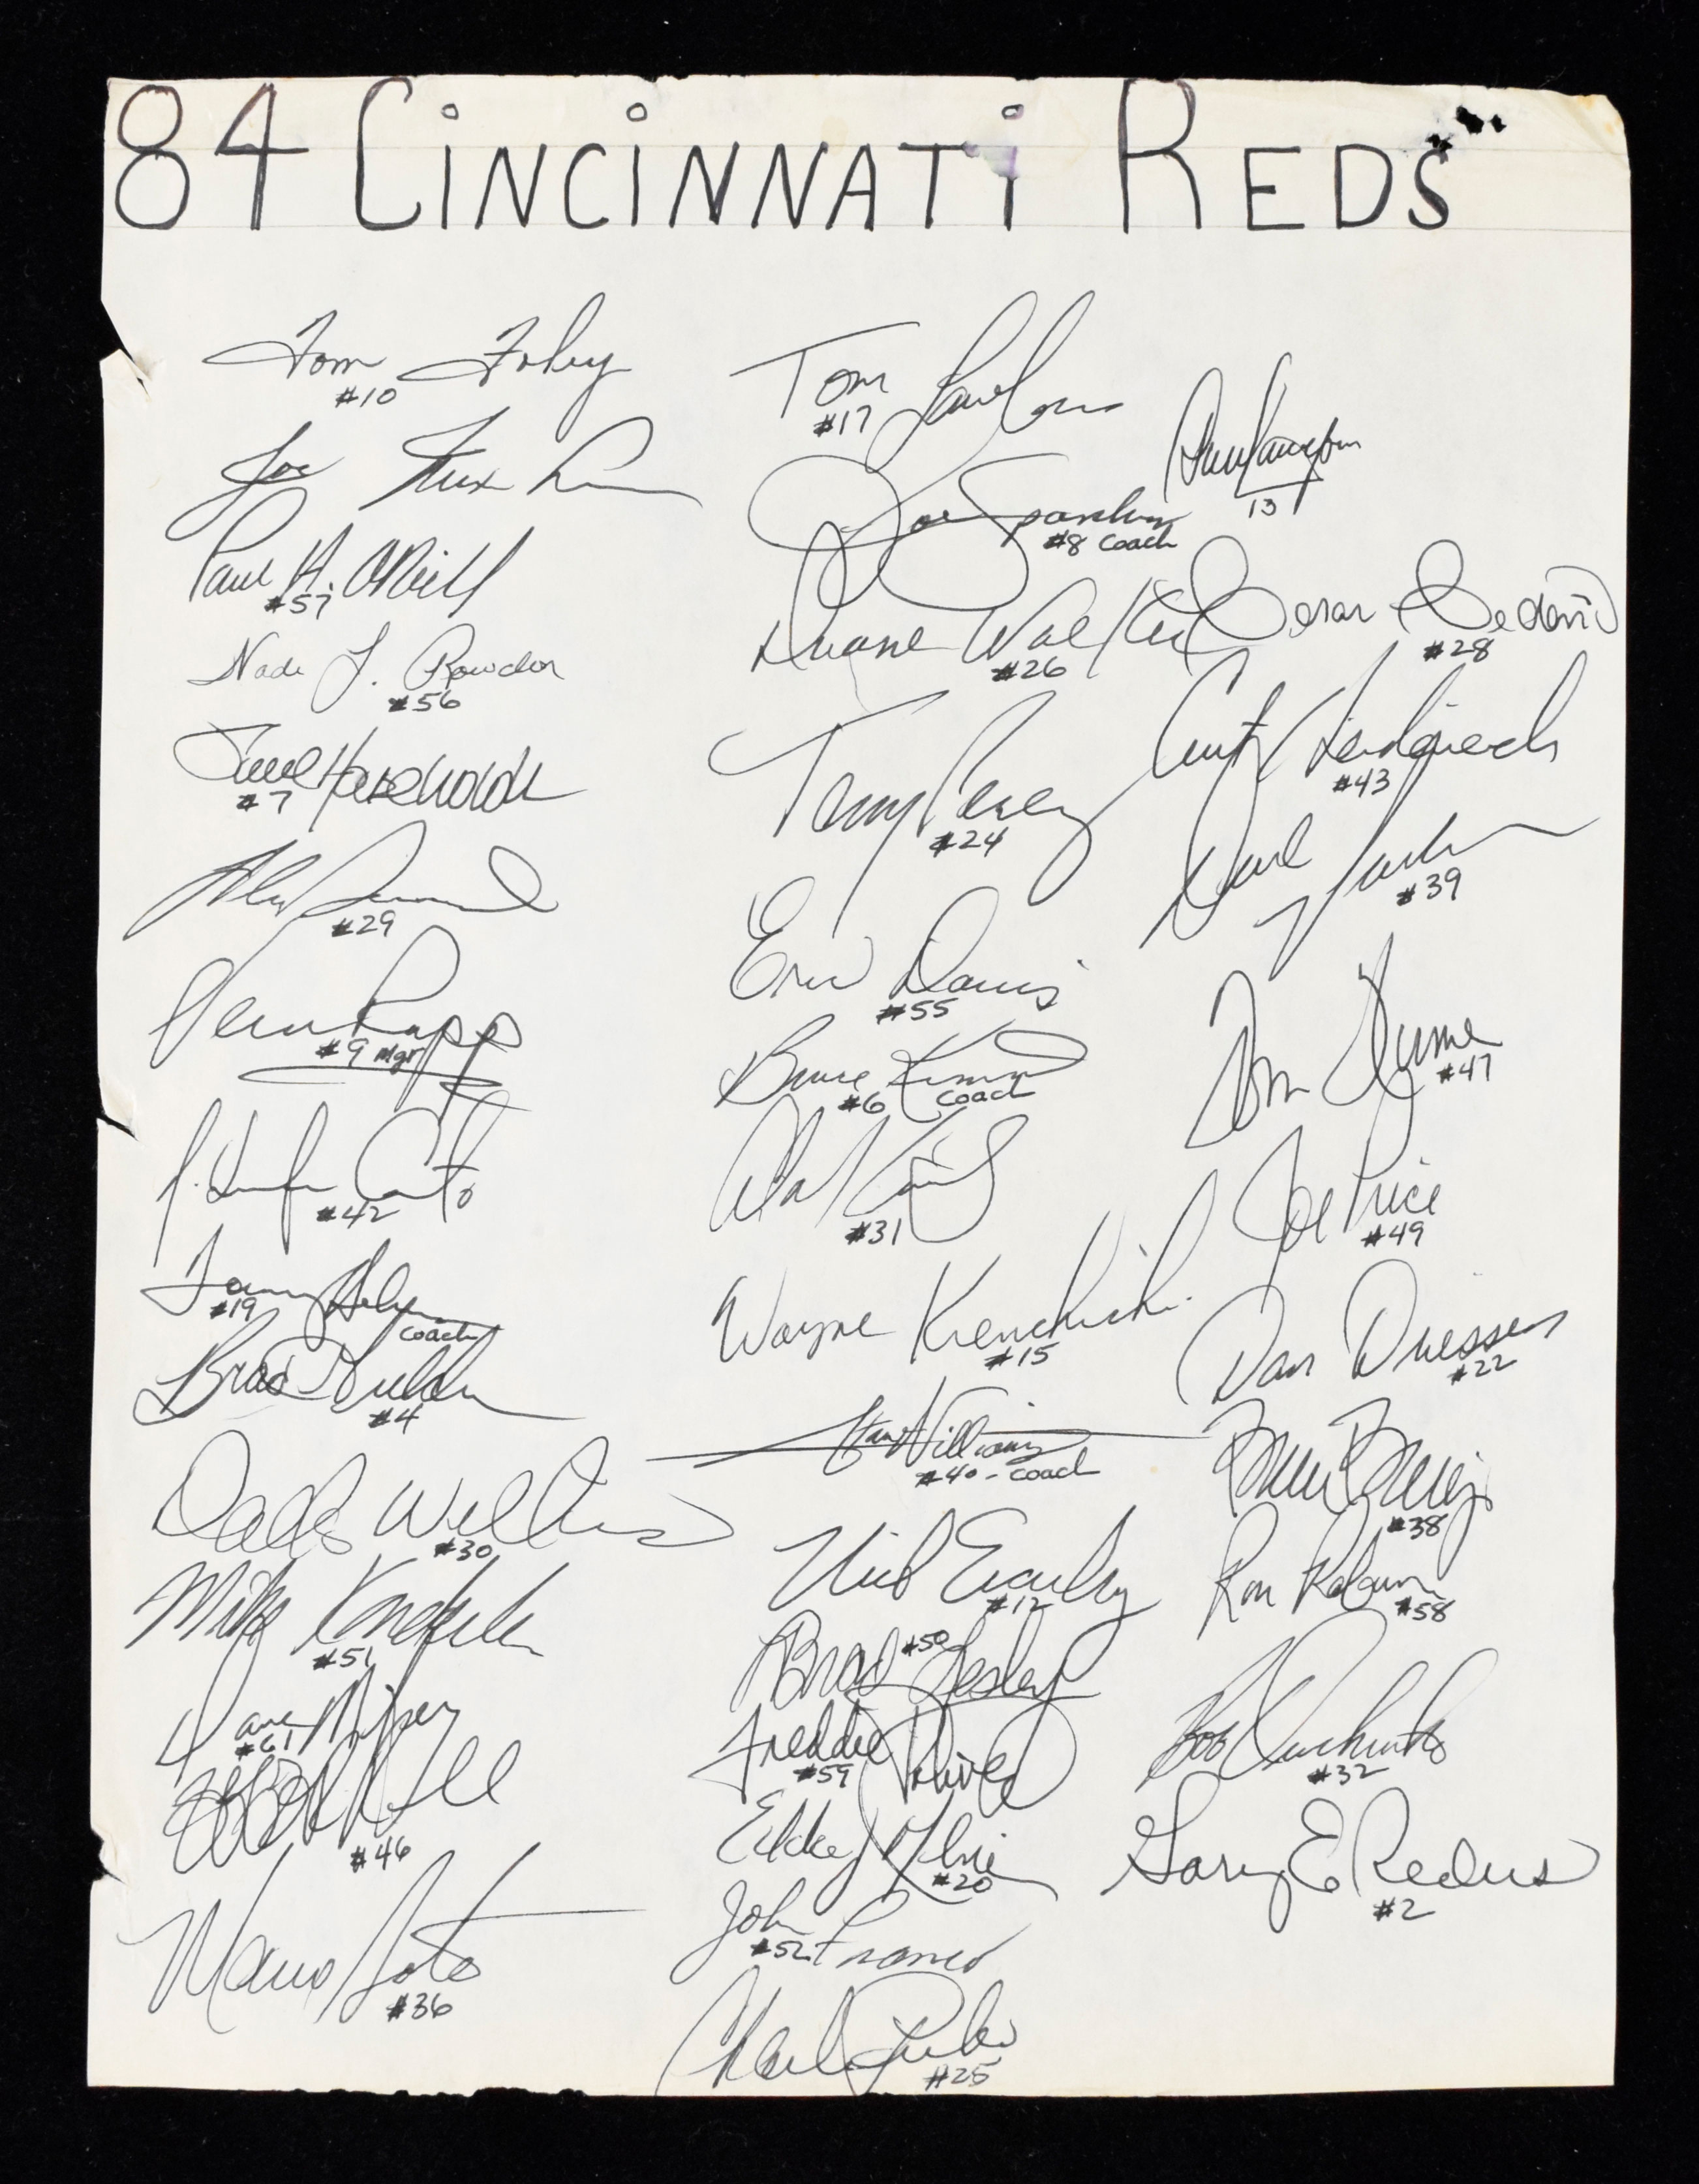 84 CiNCiNNATi REDS
Tom Foley
#10
Joe
Paul H. O'Neill
#57
Wade L. Rowdon
#56
Householder
#7
Alan
#29
Vern Rapp
#9 Mgr
#42
Tommy Helms
#19 coach
Brad Gulden
#4
Dallas Williams
#30
Mike Konderla
#51
Dave Miley
#61
#46
Mario Soto
#36
Tom Lawless
#17
Joe Sparks
#8 coach
Duane Walker
#26
Tony Perez
#24
Eric Davis
#55
Bruce Kimm
#6 coach
Alan Knicely
#31
Wayne Krenchicki
#15
Stan Williams
#40 - coach
Nick Esasky
#12
Brad Lesley
#50
Freddie
#59
Eddie Milner
#20
John Franco
#52
Charlie Puleo
#25
Dave Concepcion
13
Cesar Cedeño
#28
#43
Dave Parker
#39
Tom Hume
#47
Joe Price
#49
Dan Driessen
#22
Bruce Berenyi
#38
Ron Robinson
#58
Bob
#32
Gary E Redus
#2